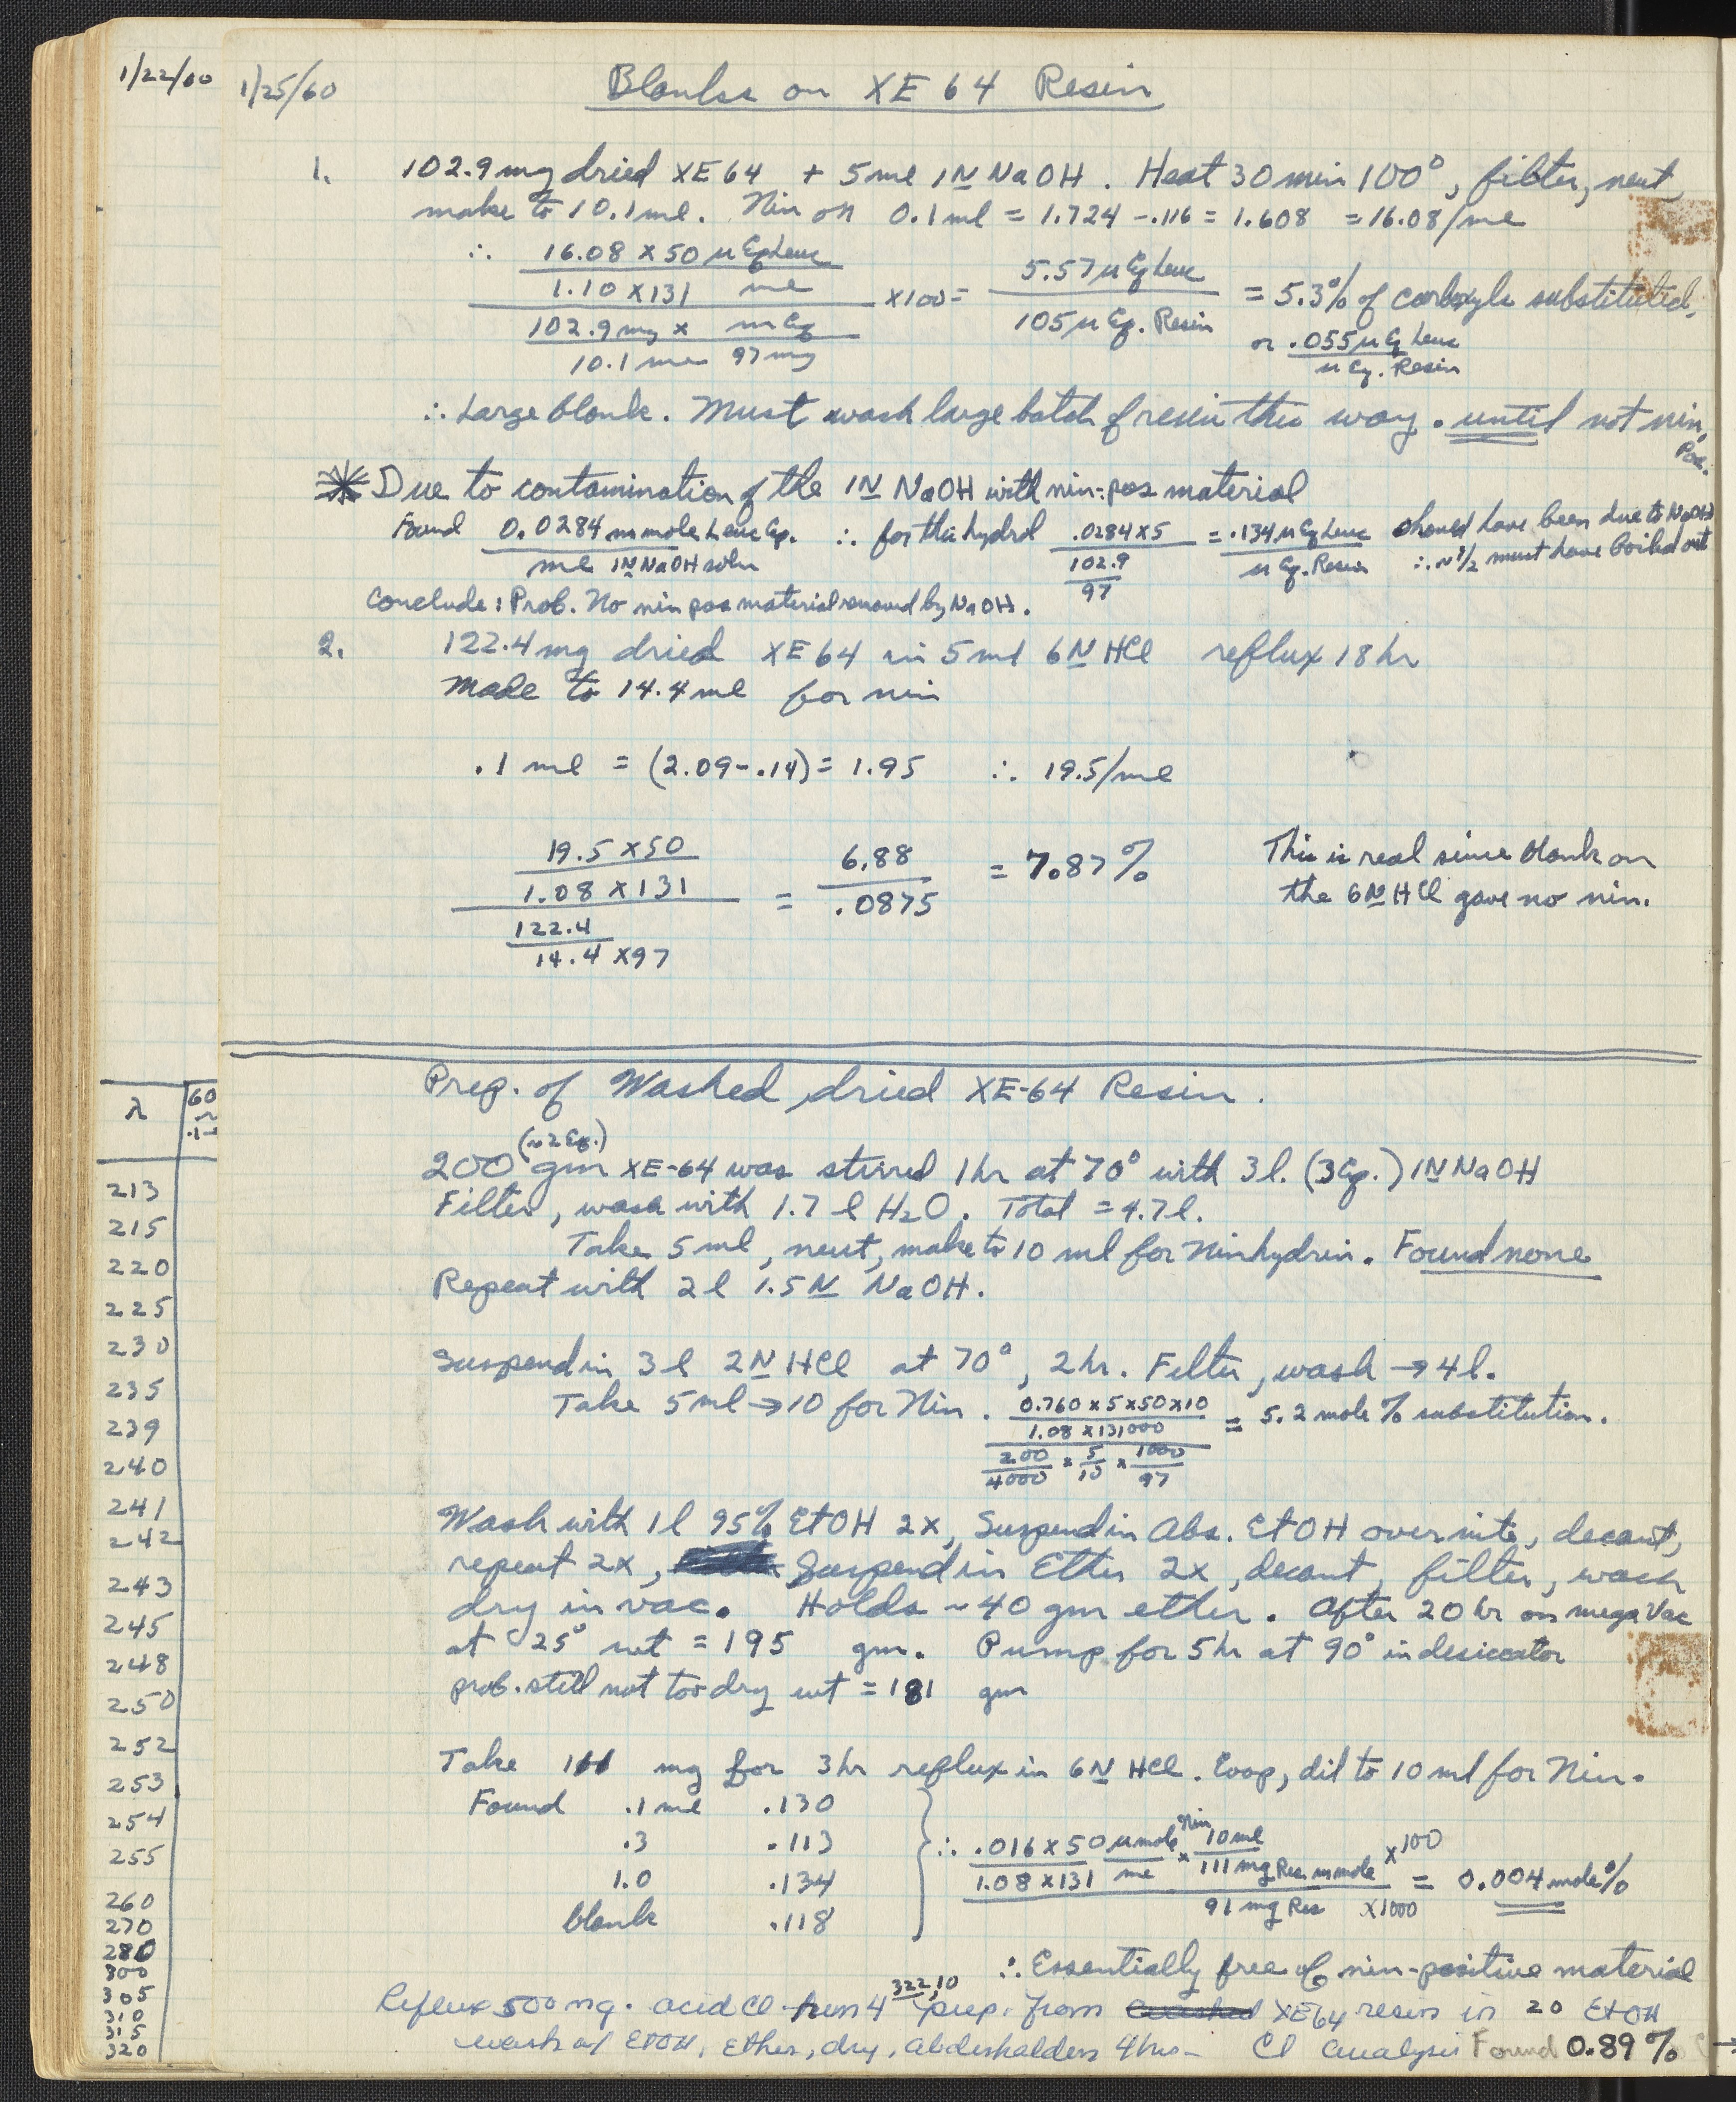 1/22/60
1/25/60
Blanks on XE 64 Resin
1. 102.9 mg dried XE 64 + 5 ml 1N NaOH. Heat 30 min 100°, filter, neut,
make to 10.1 ml. Nin on 0.1 ml = 1.724 - .116 = 1.608 = 16.08/ml
∴ 16.08 x 50 μ Eq Leuc
1.10 x 131 ml
x100 =
102.9 mg x mEq
10.1 ml 97 mg
5.57 μ Eq Leuc
105 μ Eq. Resin
= 5.3% of carboxyls substituted,
or .055 μ Eq Leuc
μ Eq. Resin
∴ Large blank. Must wash large batch of resin this way. until not nin.
Pos.
* Due to contamination of the 1N NaOH with nin-pos material
Found 0.0284 m mole Leuc Eq. ∴ for this hydrol .0284 x 5 = .134 μ Eq Leuc should have been due to NaOH
ml 1N NaOH soln 102.9 μ Eq. Resin ∴ ~ 1/2 must have boiled out
97
Conclude: Prob. No nin pos material removed by NaOH.
2. 122.4 mg dried XE 64 in 5 ml 6N HCl reflux 18 hr
Made to 14.4 ml for nin
.1 ml = (2.09 - .14) = 1.95 ∴ 19.5/ml
19.5 x 50
1.08 x 131
122.4
14.4 x 97
= 6.88
.0875
= 7.87%
This is real since blank on
the 6N HCl gave no nin.
Prep. of Washed dried XE-64 Resin.
(~2 Eq.)
200 gm XE-64 was stirred 1 hr at 70° with 3 l. (3 Eq.) 1N NaOH
Filter, wash with 1.7 l H2O. Total = 4.7 l.
Take 5 ml, neut, make to 10 ml for Ninhydrin. Found none
Repeat with 2 l 1.5 N NaOH.
Suspend in 3 l 2N HCl at 70°, 2 hr. Filter, wash → 4 l.
Take 5 ml → 10 for Nin. 0.760 x 5 x 50 x 10
1.08 x 131000
= 5.2 mole % substitution.
200 x 5 x 1000
4000 10 97
Wash with 1 l 95% EtOH 2x, Suspend in Abs. EtOH over nite, decant,
repeat 2x, Suspend in Ether 2x, decant, filter, wash
dry in vac. Holds ~ 40 gm ether. After 20 hr on mega Vac
at 25° wt = 195 gm. Pump for 5 hr at 90° in desiccator
prob. still not too dry wt = 181 gm
Take 111 mg for 3 hr reflux in 6N HCl. Evap, dil to 10 ml for Nin.
Found .1 ml .130
.3 .113
1.0 .134
blank .118
∴ .016 x 50 μ mole Nin x 10 ml x 100
1.08 x 131 ml 111 mg Res m mole = 0.004 mole %
91 mg Res x 1000
∴ Essentially free of nin-positive material
322,10
Reflux 500 mg. acid Cl from 4 prep. from XE64 resin in 20 EtOH
wash w/ EtOH, Ether, dry, Abderhalden 4 hrs - Cl analysis Found 0.89%
→
λ
60
~
.1
213
215
220
225
230
235
239
240
241
242
243
245
248
250
252
253
254
255
260
270
280
300
305
310
315
320